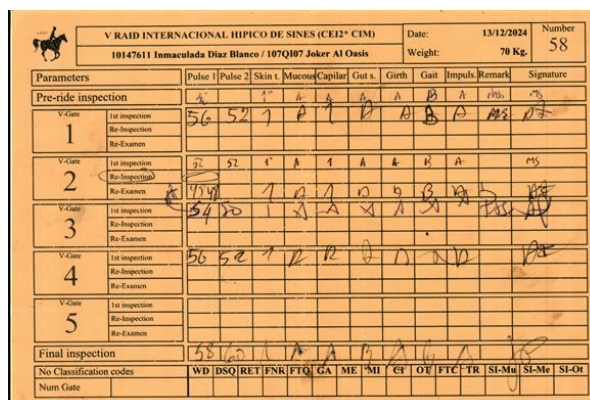 V RAID INTERNACIONAL HIPICO DE SINES (CEI2* CIM) Date: 13/12/2024 Number
10147611 Inmaculada Diaz Blanco / 107QI07 Joker Al Oasis Weight: 70 Kg. 58
Parameters Pulse 1 Pulse 2 Skin t. Mucous Capilar Gut s. Girth Gait Impuls. Remark Signature
Pre-ride inspection A A A A B A
V-Gate 1 1st inspection 56 52 1 A 1 A A B A MS
Re-Inspection
Re-Examen
V-Gate 2 1st inspection 52 52 1 A 1 A A B A MS
Re-Inspection
Re-Examen 1 1 B
V-Gate 3 1st inspection 54 50 1 A A A A A
Re-Inspection
Re-Examen
V-Gate 4 1st inspection 56 52 1
Re-Inspection
Re-Examen
V-Gate 5 1st inspection
Re-Inspection
Re-Examen
Final inspection 58 60 A A B A
No Classification codes WD DSQ RET FNR FTQ GA ME MI CI OT FTC TR SI-Mu SI-Me SI-Ot
Num Gate